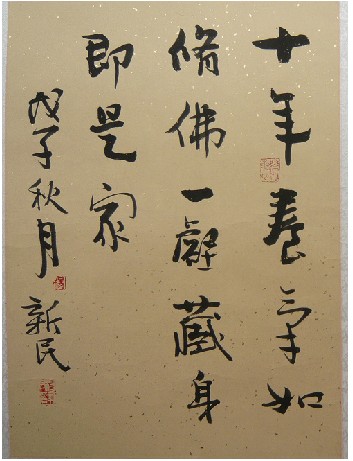 十年養氣如
脩佛一壑藏身
即是家
戊子秋月 新民